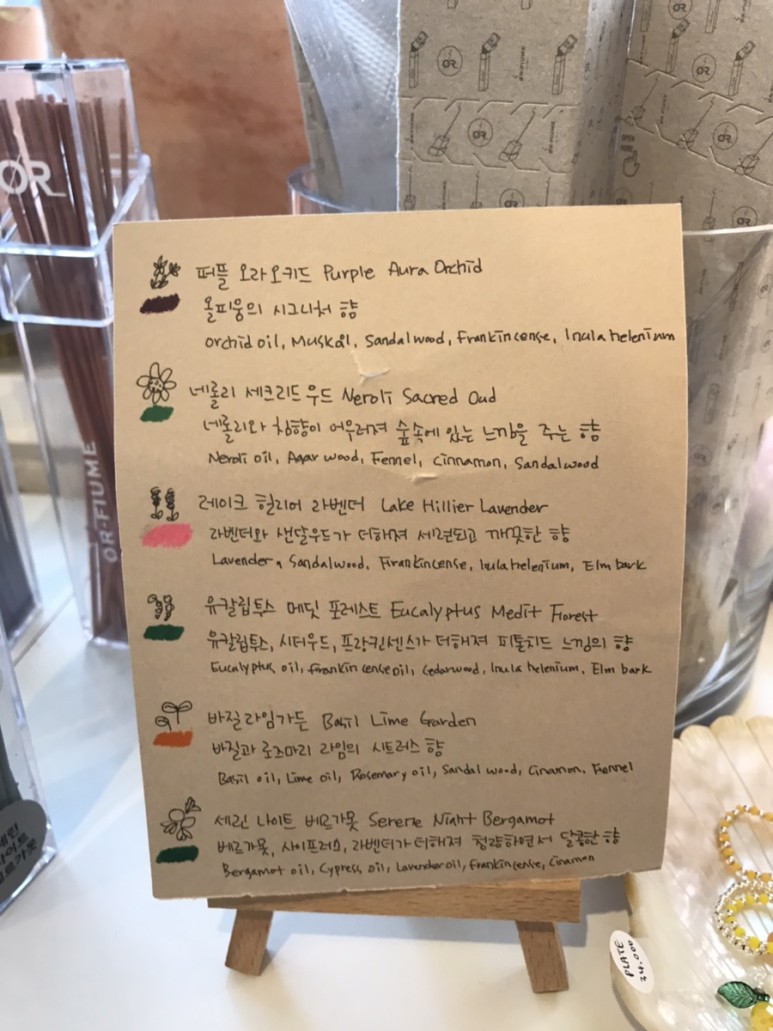 OR
OR·FIUME
퍼플 오라 오키드 Purple Aura Orchid
올피움의 시그니처 향
orchid oil, Muskal, Sandalwood, Frankincense, Inula helenium
네롤리 세크리드 우드 Neroli Sacred Oud
네롤리와 침향이 어우러져 숲속에 있는 느낌을 주는 향
Neroli oil, Agar wood, Fennel, Cinnamon, Sandalwood
레이크 힐리어 라벤더 Lake Hillier Lavender
라벤더와 샌달우드가 더해져 세련되고 깨끗한 향
Lavender, Sandalwood, Firankincense, Inula helenium, Elm bark
유칼립투스 메딧 포레스트 Eucalyptus Medit Forest
유칼립투스, 시더우드, 프랑킨센스가 더해져 피톨치드 느낌의 향
Eucalyptus oil, frankincense oil, Cedarwood, Inula helenium, Elm bark
바질라임가든 Basil Lime Garden
바질과 로즈마리 라임의 시트러스 향
Basil oil, Lime oil, Rosemary oil, Sandal wood, Cinamon, Fennel
세린 나이트 베르가못 Serene Night Bergamot
베르가못, 사이프러스, 라벤더가 더해져 청량하면서 달콤한 향
Bergamot oil, Cypress oil, Lavender oil, Frankincense, Cinamon
PLATE
34.000